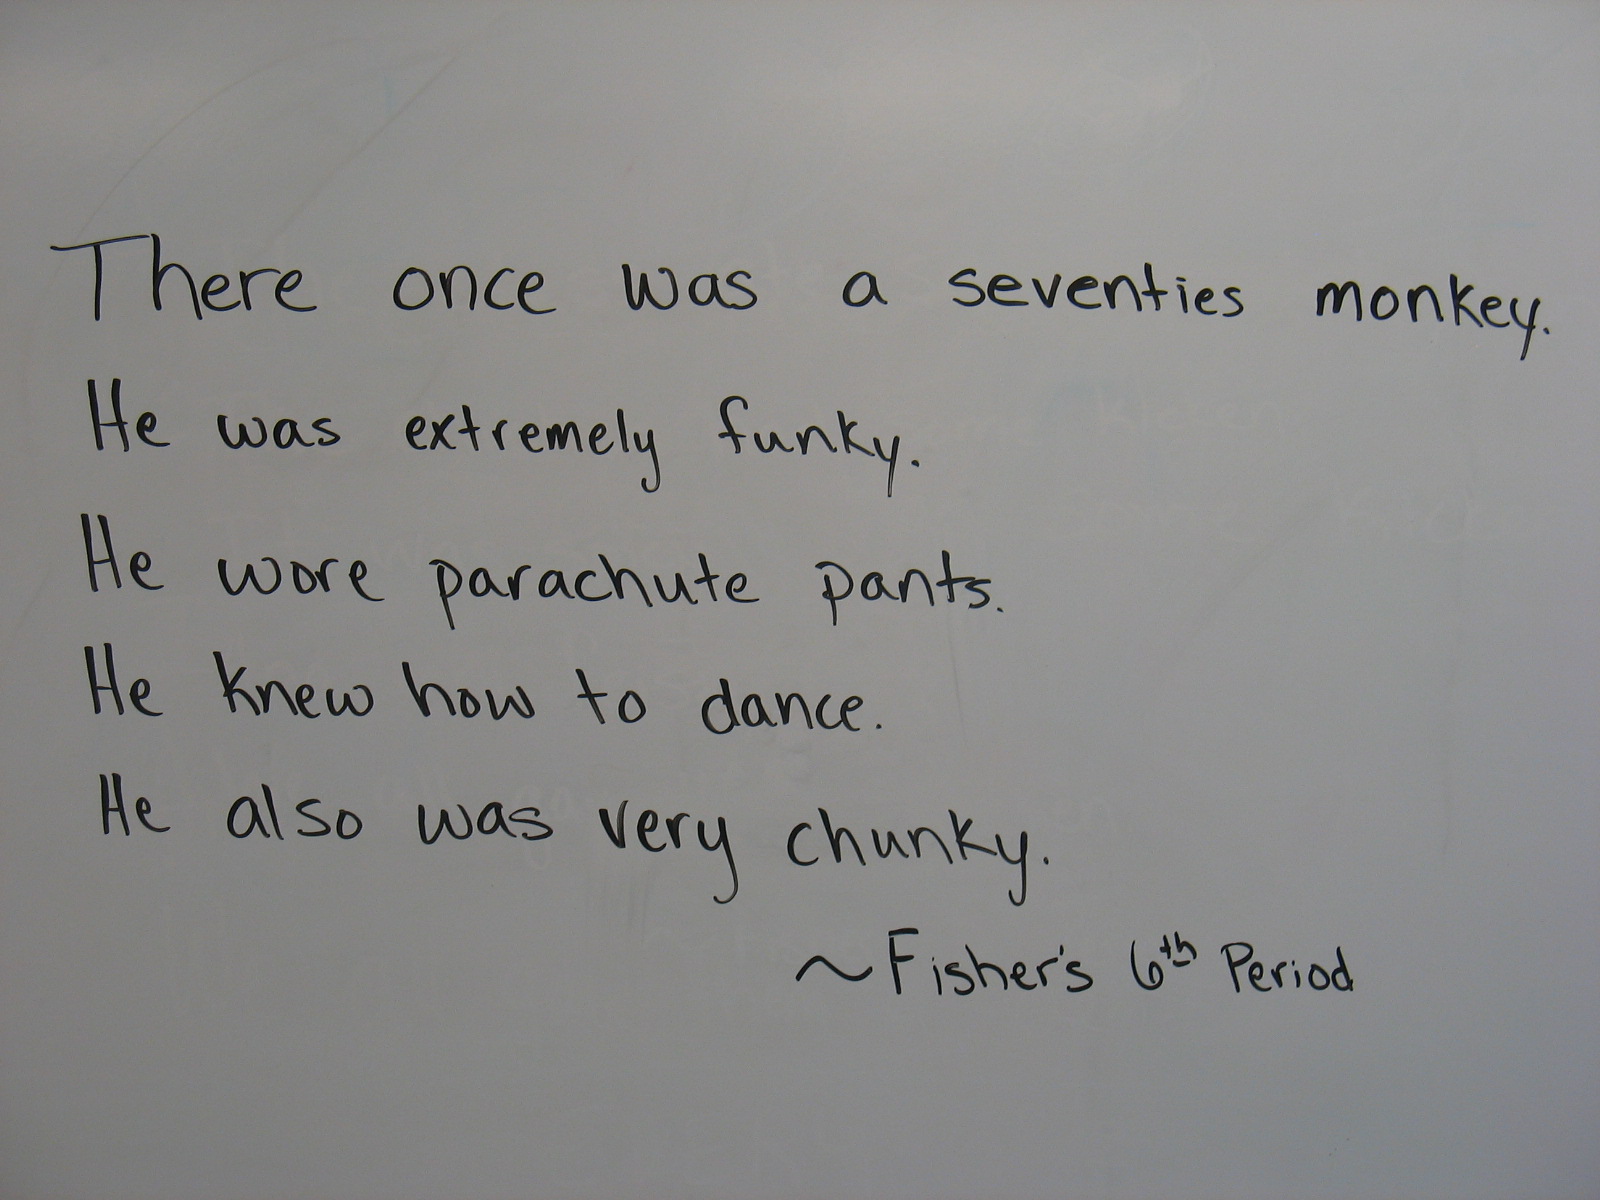 There once was a seventies monkey.
He was extremely funky.
He wore parachute pants.
He knew how to dance.
He also was very chunky.
~Fisher's 6th Period